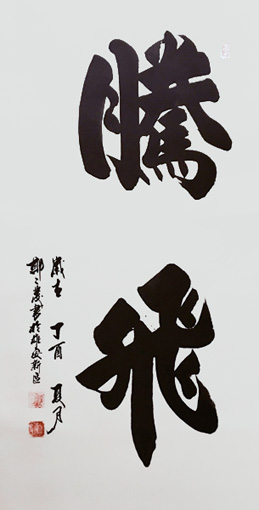 騰飛
歲在丁酉夏月
鄭之農書於雄安新區